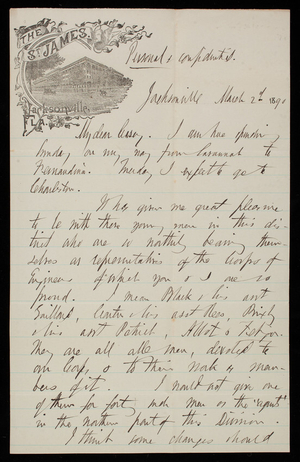 THE
ST. JAMES.
Jacksonville,
FLA.
Personal & confidential.
Jacksonville March 2d 1890
My dear Casey. I am here spending
Sunday on my way from Savannah to
Fernandina. Tuesday I expect to go to
Charleston.
It has given me great pleasure
to be with these young men in this dis-
trict who are so worthily bearing them-
selves as representatives of the Corps of
Engineers of which you & I are so
proud. I mean Black & his asst
Gaillard, Carter & his asst Rees, Bixby
& his asst Patrick, Abbot &
They are all able men, devoted to
our Corps & to their work as mem-
bers of it. I would not give one
of them for forty such men as the
in the northern part of this Division.
I think some changes should